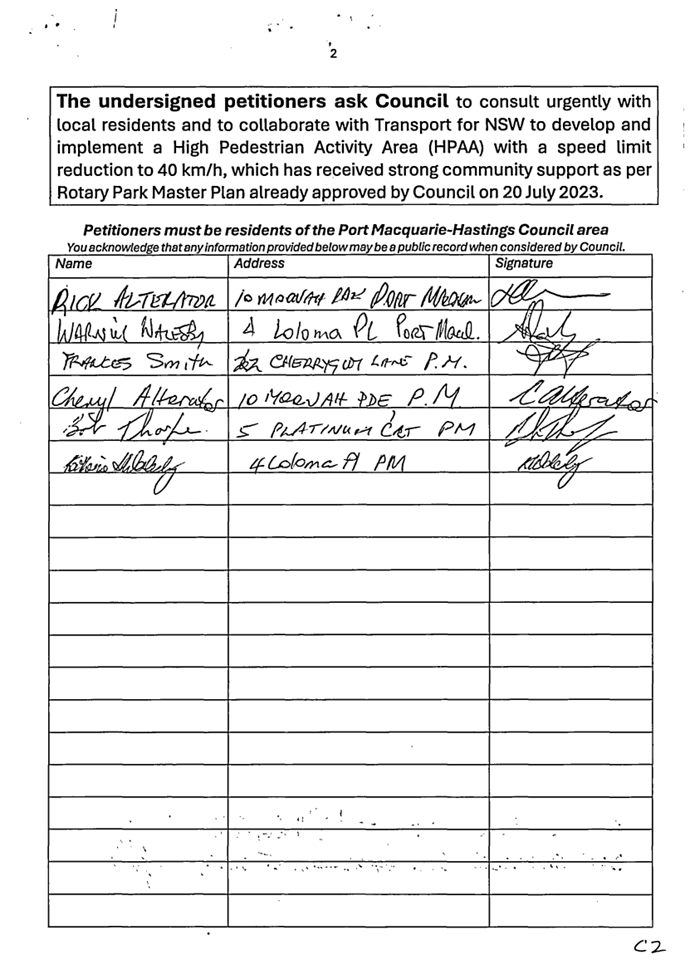 2
The undersigned petitioners ask Council to consult urgently with
local residents and to collaborate with Transport for NSW to develop and
implement a High Pedestrian Activity Area (HPAA) with a speed limit
reduction to 40 km/h, which has received strong community support as per
Rotary Park Master Plan already approved by Council on 20 July 2023.
Petitioners must be residents of the Port Macquarie-Hastings Council area
You acknowledge that any information provided below may be a public record when considered by Council.
Name Address Signature
RICK ALTERATOR 10 MOORVAH PORT
4 Loloma PL PORT Macq.
FRANCES Smith LANE P.M.
Cheryl Alterator 10 MOORVAH PDE P.M C Alterator
Bob Thorpe. 5 PLATINUM CRT PM
4 Loloma Pl PM
C2